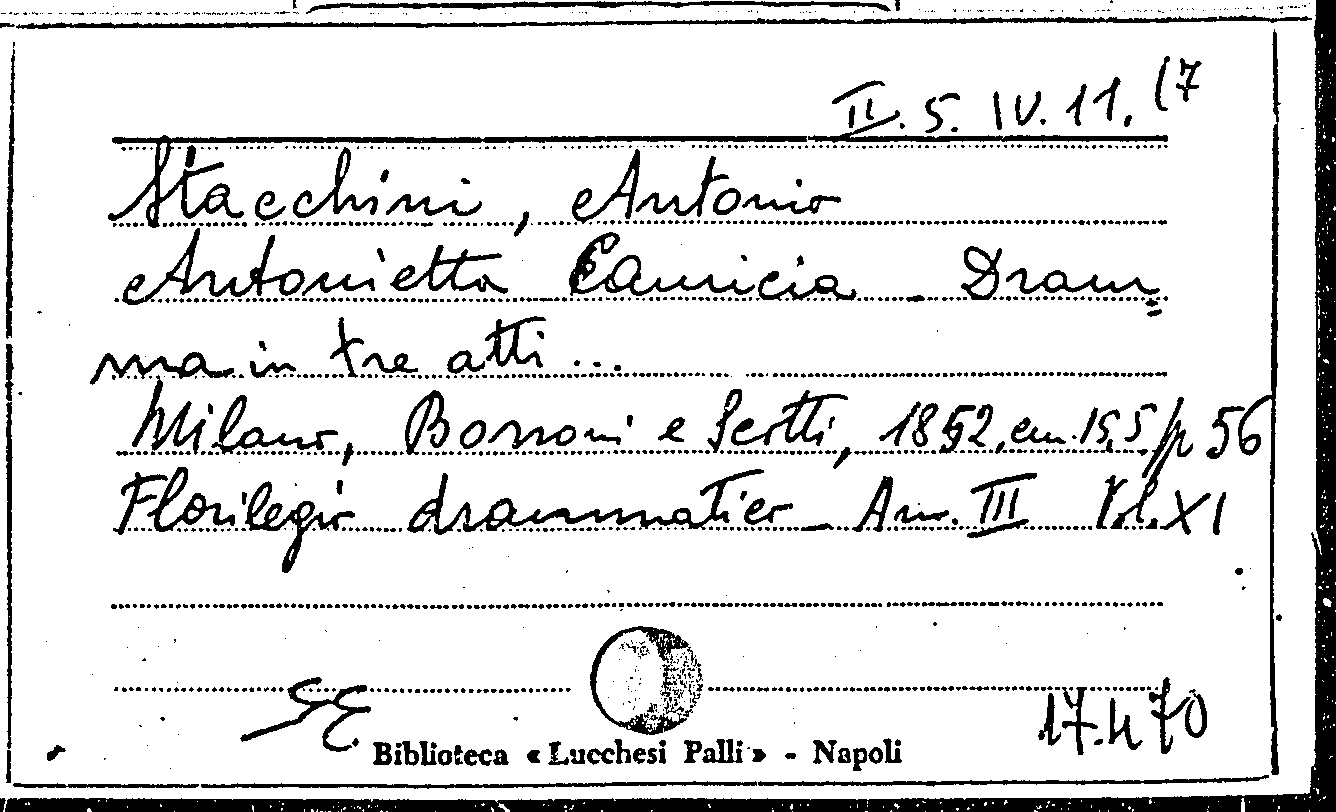 II. 5. IV. 11. (7
Stacchini, Antonio
Antonietta Camicia - Dram=
ma in tre atti...
Milano, Borroni e Scotti, 1852, cm. 15,5 p 56
Florilegio drammatico - An. III Vol. XI
17.4 70
Biblioteca « Lucchesi Palli » - Napoli